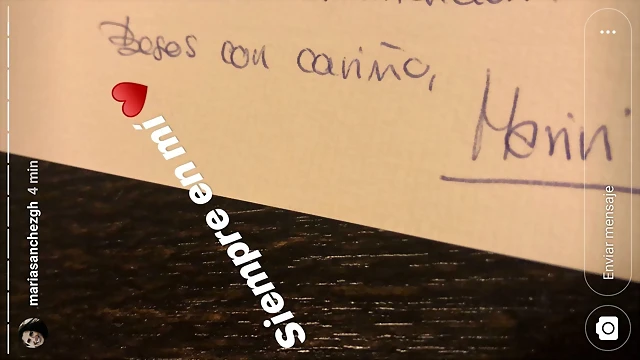 Besos con cariño,
Marini
Siempre en mí ❤
mariasanchezgh 4 min
Enviar mensaje